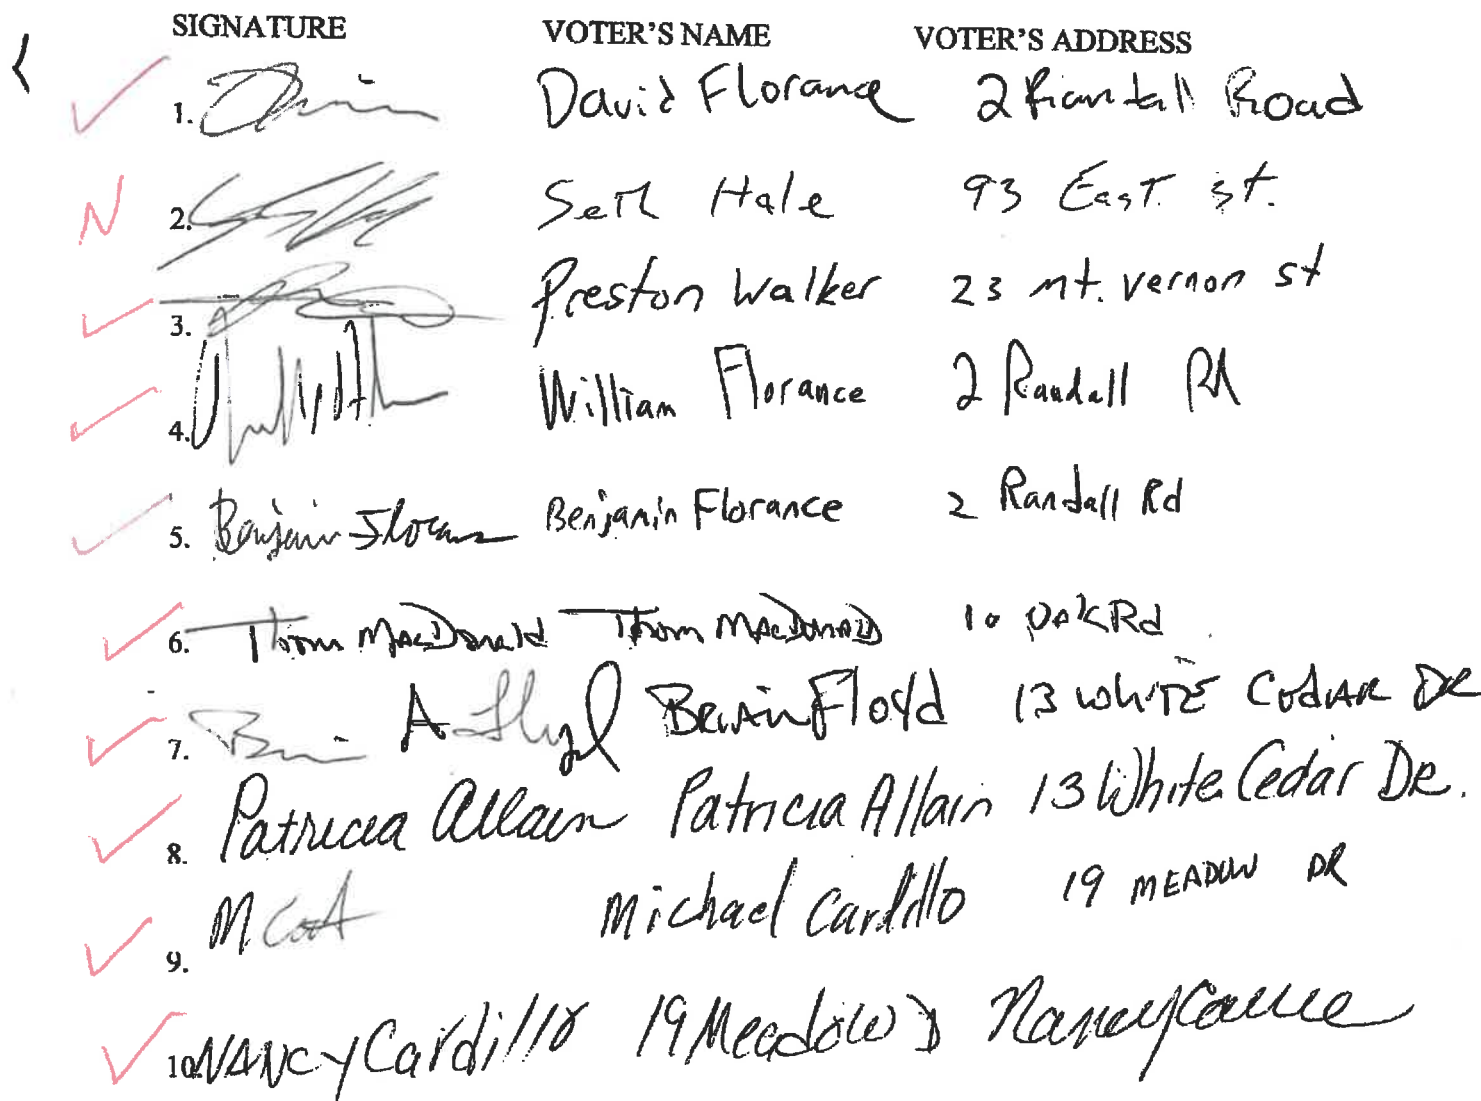 SIGNATURE VOTER'S NAME VOTER'S ADDRESS
1. David Florance 2 Randall Road
N 2. Seth Hale 93 East st.
3. Preston Walker 23 Mt. Vernon st
4. William Florance 2 Randall Rd
5. Benjamin Florance Benjamin Florance 2 Randall Rd
6. Thom MacDonald Thom MacDonald 10 Oak Rd
7. A Floyd Brian Floyd 13 White Cedar Dr
8. Patricia Allain Patricia Allain 13 White Cedar Dr.
9. M Michael Cardillo 19 Meadow Dr
10. Nancy Cardillo 19 Meadow D Nancy